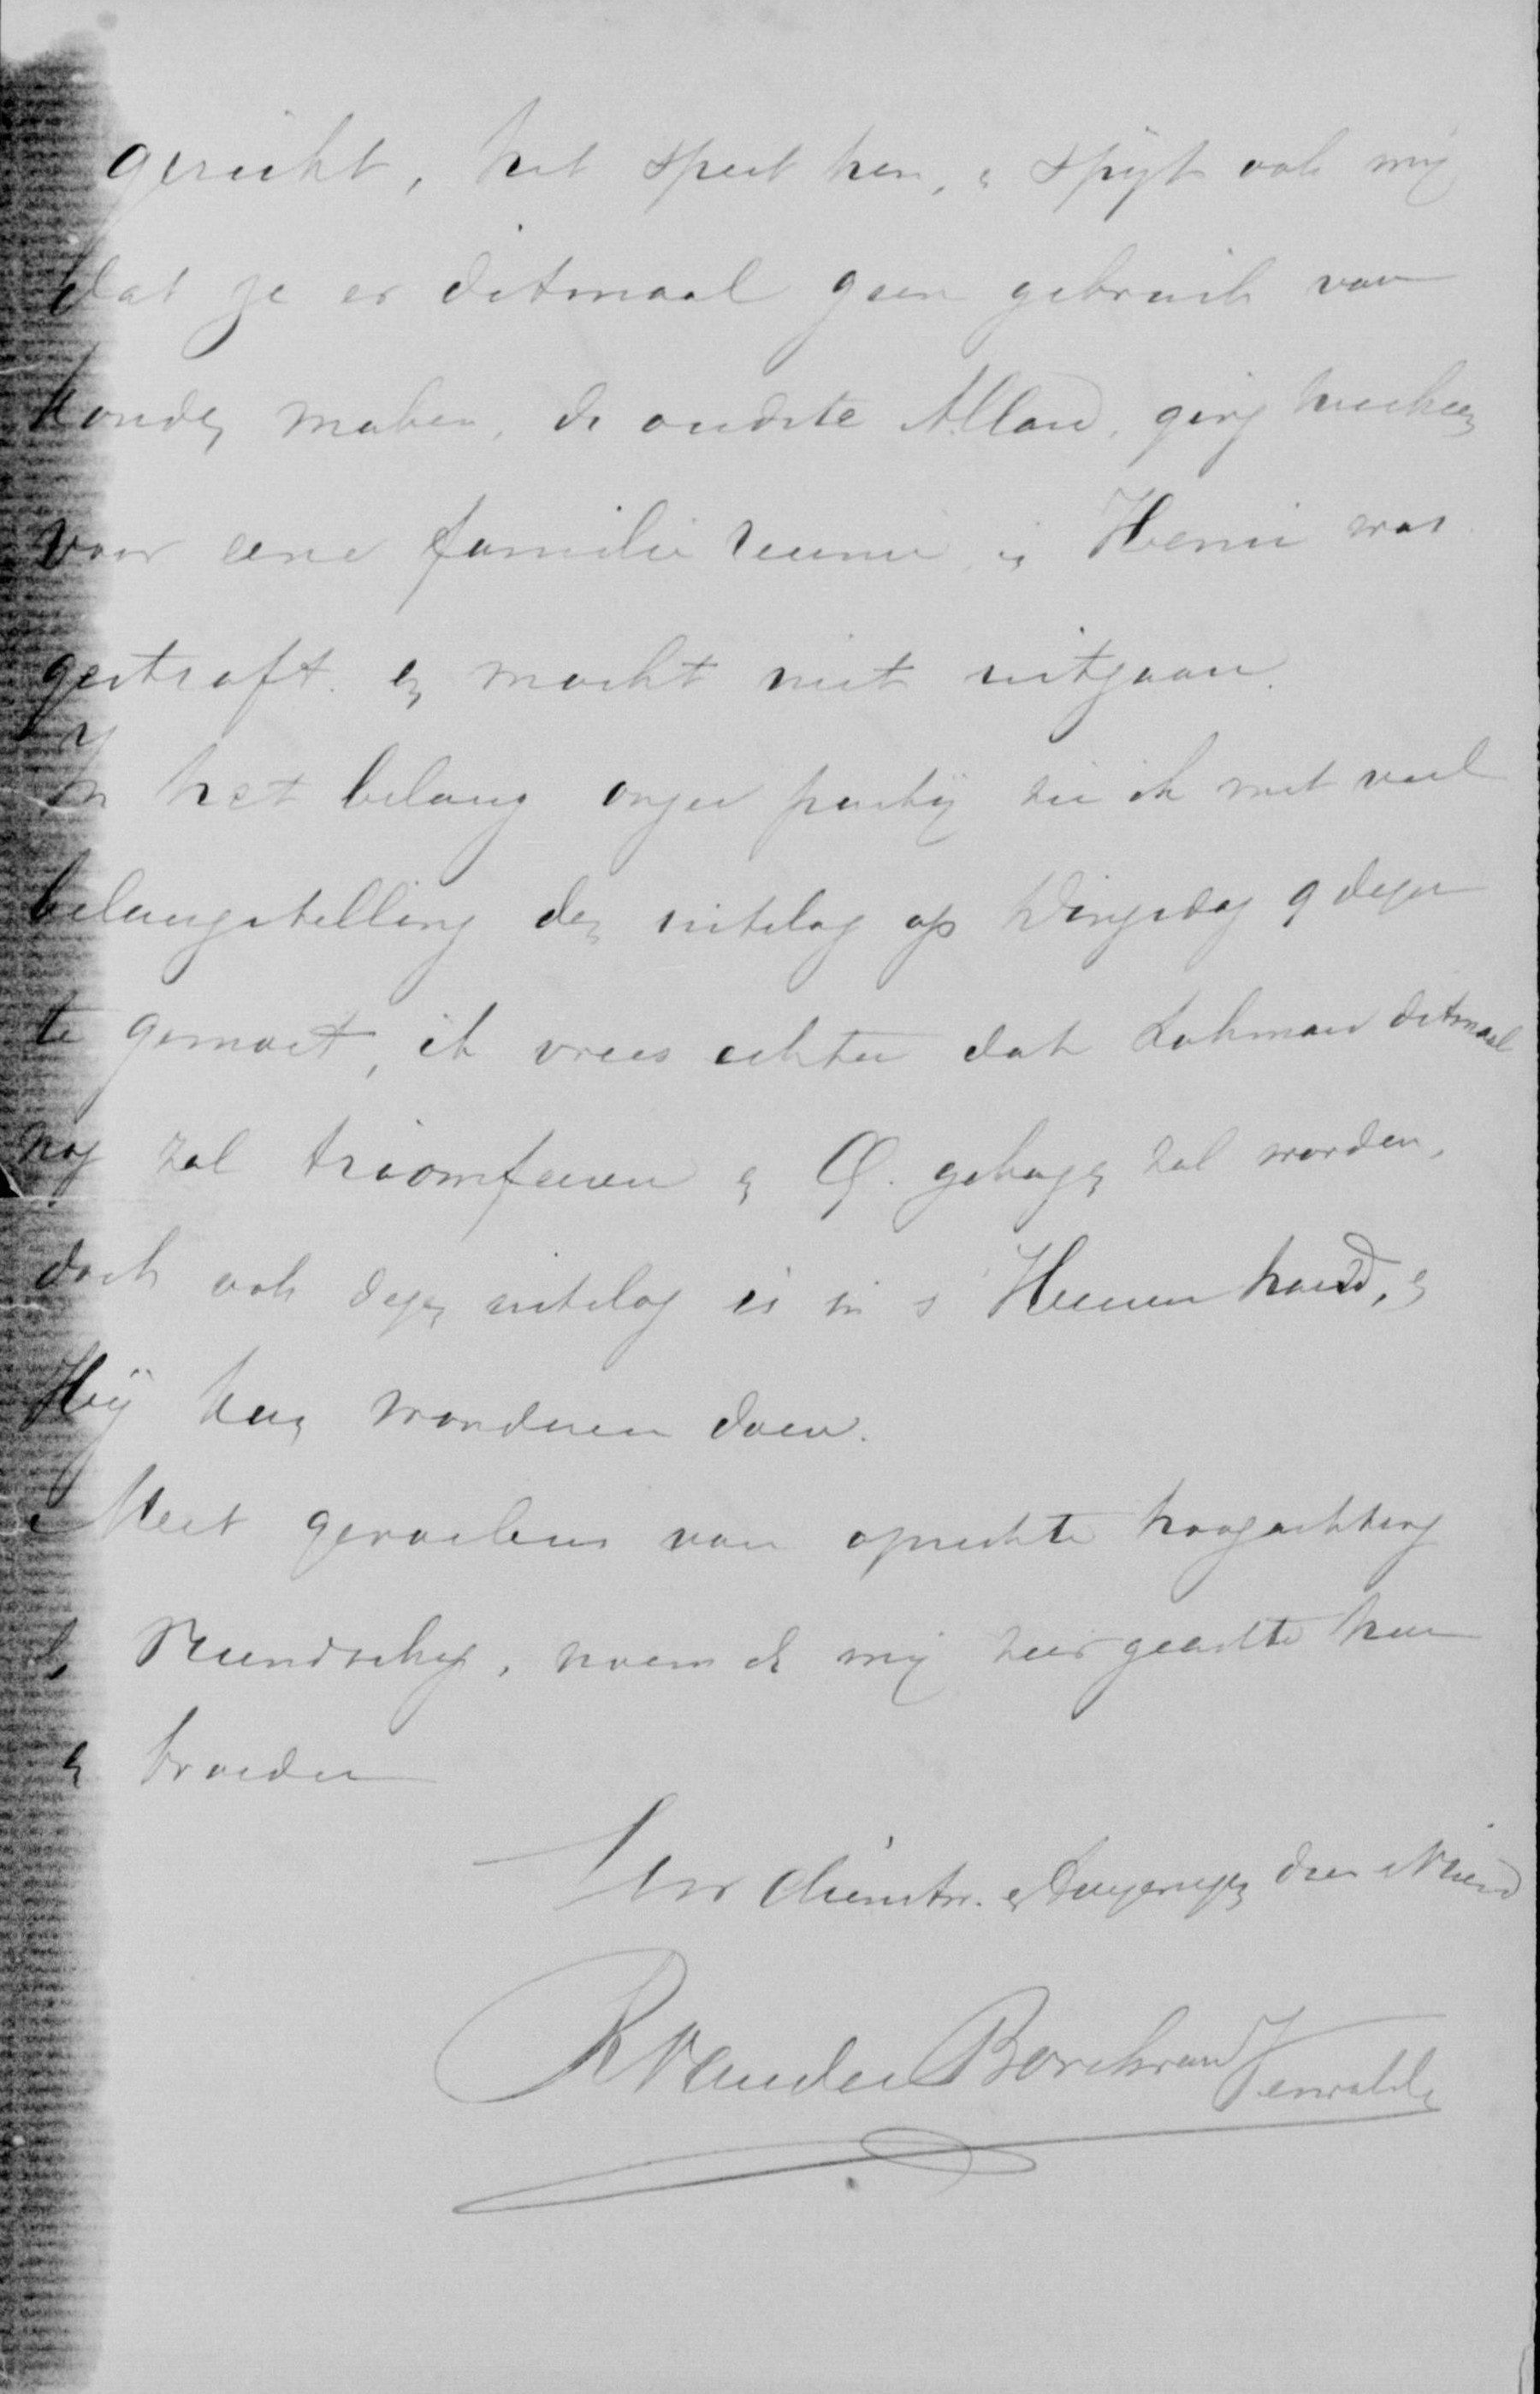 gericht, het speet hen, & spijt ook mij
dat ze er ditmaal geen gebruik van
konden maken, de oudste Allard, ging
voor eene familie reunie, en Henri was
gestraft en mocht niet uitgaan.
In het belang onzer partij zie ik met veel
belangstelling den uitslag op Dingsdag 9 dezer
te gemoet, ik vrees echter dat Lohman ditmaal
nog zal triomfeeren & Q. zal worden,
doch ook dezen uitslag is in s' Heeren hand, en
Hij kan wonderen doen.
Met gevoelens van oprechte hoogachting
& Vriendschap, noem ik mij zeer geachte heer
en broeder
Uw dienstw. & toegenegen dw Vriend
R van der Borch van Verwolde